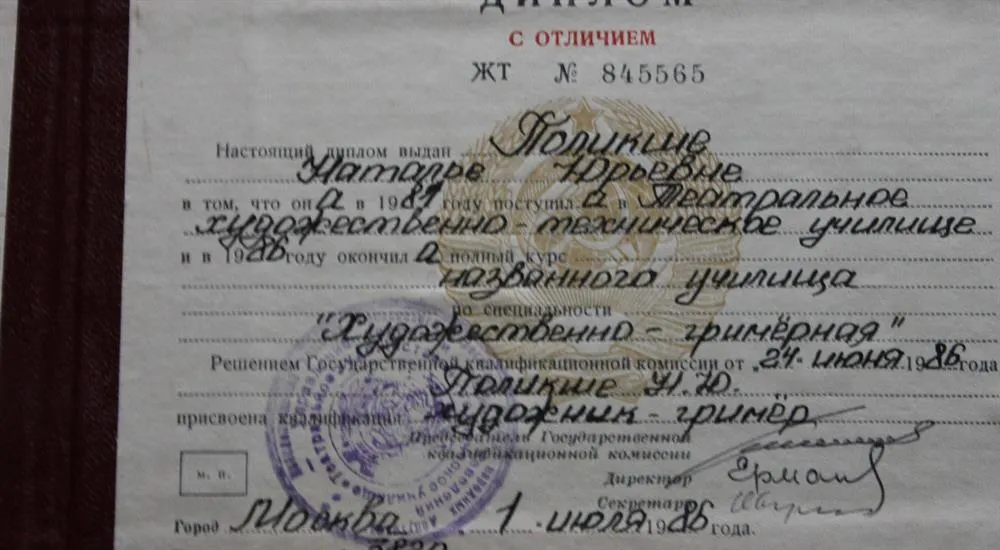 ДИПЛОМ
С ОТЛИЧИЕМ
ЖТ № 845565
Настоящий диплом выдан Поликше
Наталье Юрьевне
в том, что он а в 19 году поступил а в Театральное
художественно-техническое училище
и в 1986 году окончил а полный курс
названного училища
по специальности
"Художественно-гримёрная"
Решением Государственной квалификационной комиссии от „24" июня 1986 года
Поликше Н.Ю.
присвоена квалификация художник-гримёр
Председатель Государственной
квалификационной комиссии
м. п.
Директор
Секретарь
Город Москва 1 июля 1986 года.